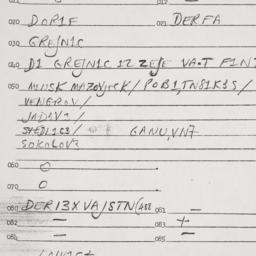 020 DORIF 021 DERFA
030 GREJNIC
040 DI GREJNIC IZ ZEJE VA.T FIN
050 MINSK MAZOVJECK / POBI,TNSIK3S /
VENGROV /
JADOV3 /
SHEDLIC3 / GANU,VN7
SOKOLOV3
060 O
070 O
080 DERI3X VAJSTN(48E 081 —
082 — 083 +
084 — 085 —